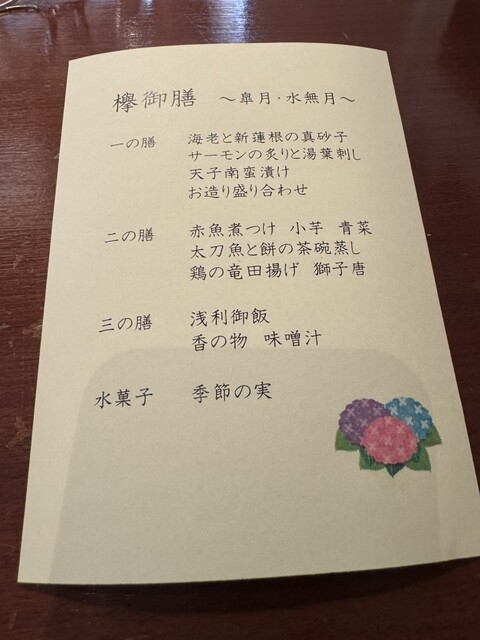 欅御膳 ～皐月・水無月～
一の膳 海老と新蓮根の真砂子
サーモンの炙りと湯葉刺し
天子南蛮漬け
お造り盛り合わせ
二の膳 赤魚煮つけ 小芋 青菜
太刀魚と餅の茶碗蒸し
鶏の竜田揚げ 獅子唐
三の膳 浅利御飯
香の物 味噌汁
水菓子 季節の実